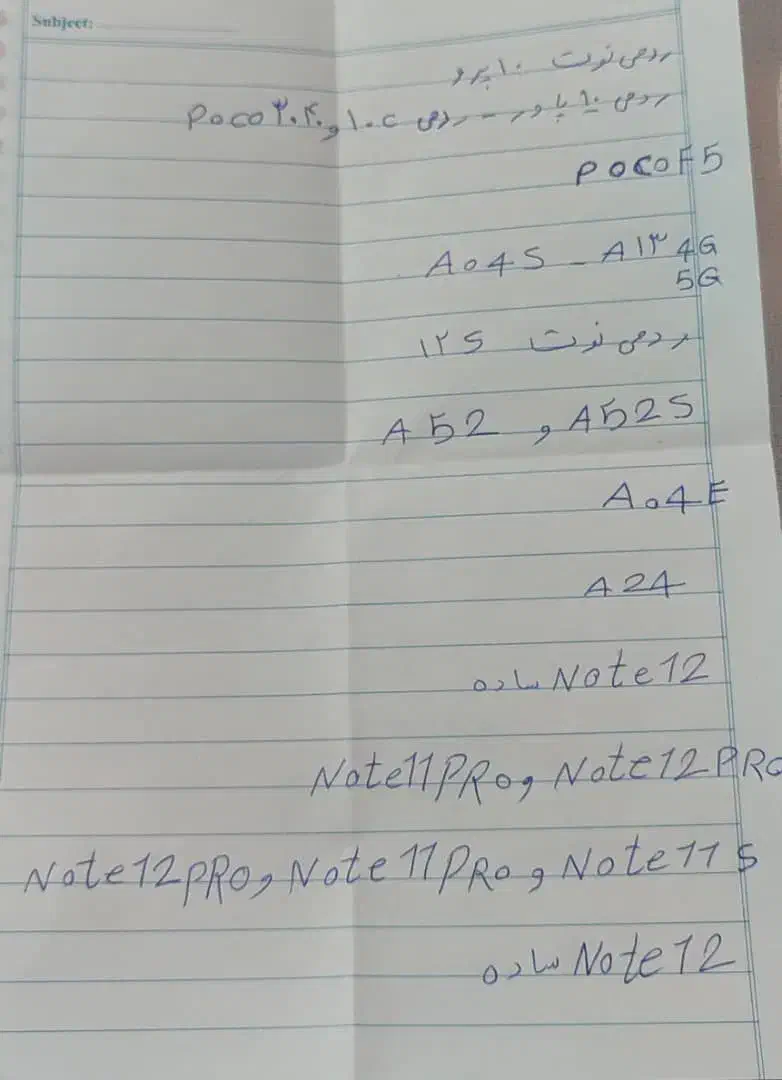 Subject:
ردمی نوت ۱۰ پرو
ردمی ۱۰ پاور - ردمی ۱۰c و poco ۳.۴۰
poco F5
A04S - A۱۳ 4G
5G
ردمی نوت ۱۲S
A52 و A52S
A04E
A24
Note12 ساده
Note11PRo و Note12PRO
Note12pRo و Note11PRo و Note11S
Note12 ساده